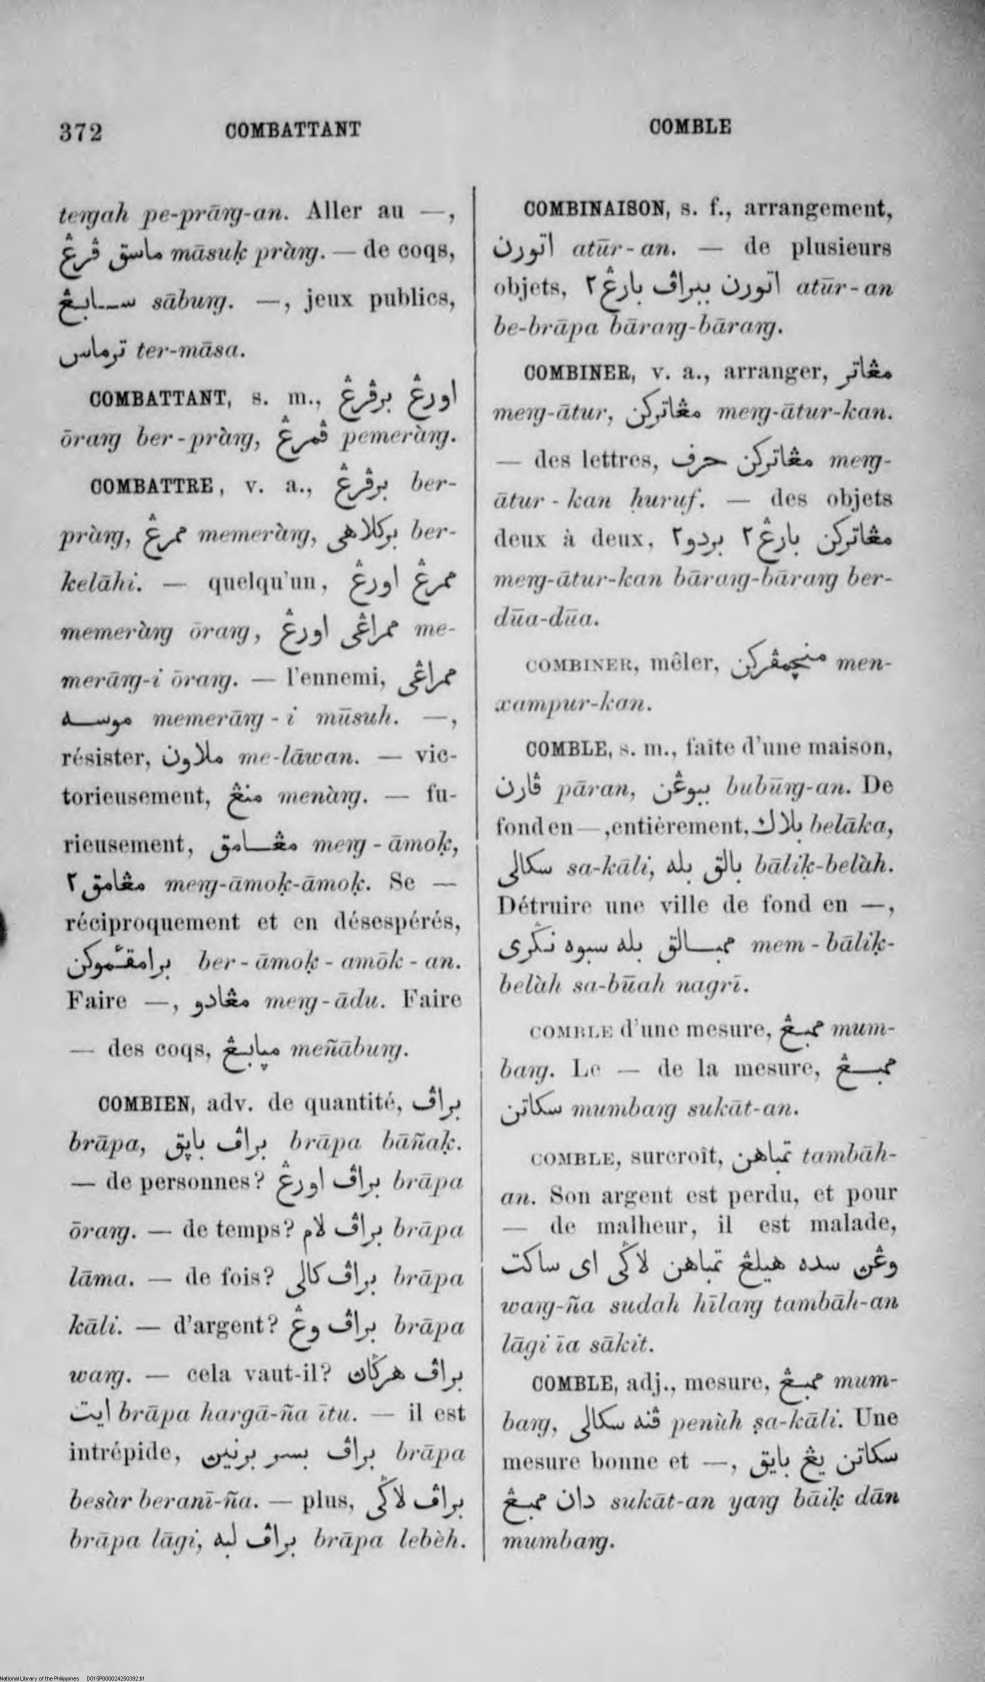 372
COMBATTANT
COMBLE
teṅgah pe-prāṅg-an. Aller au —,
ماسق ڤرڠ māsuḳ pràṅg. — de coqs,
سابڠ sābuṅg. —, jeux publics,
ترماس ter-māsa.
COMBATTANT, s. m., اورڠ برڤرڠ
ōraṅg ber-pràṅg, ڤمرڠ pemeràṅg.
COMBATTRE, v. a., برڤرڠ ber-
pràṅg, ممرڠ memeràṅg, بركلاهي ber-
kelāhi. — quelqu'un, ممرڠ اورڠ
memeràṅg ōraṅg, ممراڠي اورڠ me-
merāṅg-i ōraṅg. — l'ennemi, ممراڠي
موسه memerāṅg-i mūsuh. —,
résister, ملاون me-lāwan. — vic-
torieusement, منڠ menàṅg. — fu-
rieusement, مڠامق meṅg-āmoḳ,
مڠامق٢ meṅg-āmoḳ-āmoḳ. Se —
réciproquement et en désespérés,
ber-āmoḳ-amōk-an.
Faire —, مڠادو meṅg-ādu. Faire
— des coqs, مڽابڠ meñābuṅg.
COMBIEN, adv. de quantité, براڤ
brāpa, براڤ باڽق brāpa bāñaḳ.
— de personnes? براڤ اورڠ brāpa
ōraṅg. — de temps? براڤ لام brāpa
lāma. — de fois? براڤ كالي brāpa
kāli. — d'argent? براڤ وڠ brāpa
waṅg. — cela vaut-il? براڤ هرڬاڽ
ايت brāpa hargā-ña ītu. — il est
intrépide, براڤ بسر برنيڽ brāpa
besàr beranī-ña. — plus, براڤ لاڬي
brāpa lāgi, براڤ لبه brāpa lebèh.
COMBINAISON, s. f., arrangement,
اتورن atūr-an. — de plusieurs
objets, اتورن ببراڤ بارڠ٢ atūr-an
be-brāpa bāraṅg-bāraṅg.
COMBINER, v. a., arranger, مڠاتر
meṅg-ātur, مڠاتركن meṅg-ātur-kan.
— des lettres, مڠاتركن حرف meṅg-
ātur-kan ḥuruf. — des objets
deux à deux, مڠاتركن بارڠ٢ بردو٢
meṅg-ātur-kan bāraṅg-bāraṅg ber-
dūa-dūa.
COMBINER, mêler, منچمڤركن men-
xampur-kan.
COMBLE, s. m., faîte d'une maison,
ڤارن pāran, ببوڠن bubūṅg-an. De
fond en —, entièrement, بلاك belāka,
سكالي sa-kāli, بالق بله bāliḳ-belàh.
Détruire une ville de fond en —,
ممبالق بله سبوه نڬري mem-bāliḳ-
belàh sa-būah nagrī.
COMBLE d'une mesure, ممبڠ mum-
baṅg. Le — de la mesure, ممبڠ
سكاتن mumbaṅg sukāt-an.
COMBLE, surcroît, تمباهن tambāh-
an. Son argent est perdu, et pour
— de malheur, il est malade,
وڠڽ سده هيلڠ تمباهن لاڬي اي ساكت
waṅg-ña sudah hīlaṅg tambāh-an
lāgi īa sākit.
COMBLE, adj., mesure, ممبڠ mum-
baṅg, ڤنه سكالي penùh ṣa-kāli. Une
mesure bonne et —, سكاتن يڠ بايق
دان ممبڠ sukāt-an yaṅg bāiḳ dān
mumbaṅg.
National Library of the Philippines